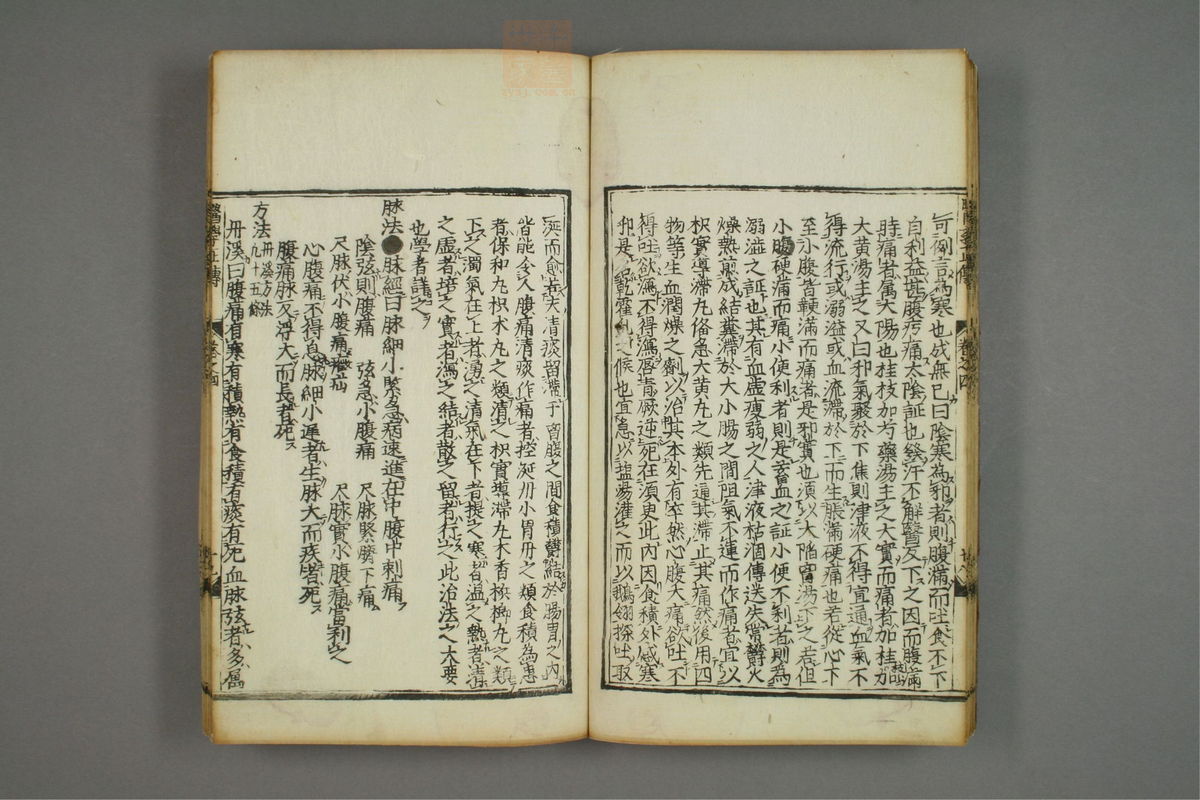 可例言為寒也成無已曰陰寒為邪者則腹滿而吐食不下
自利益甚腹疼痛太陰証也發汗不解醫反下之因而腹滿
時痛者属大陽也桂枝加芍藥湯主之大實而痛者加桂枝
大黄湯主之又曰邪氣聚於下焦則津液不得宣通血氣不
得流行或溺溢或血流滯於下而生脹滿硬痛也若從心下
至小腹皆鞕滿而痛者是邪實也須以大陷胷湯下之若但
小腹硬滿而痛小便利者則是蓄血之証小便不利者則為
溺溢之証也其有血虚瘦弱之人津液枯涸傳送失常欝火
燥熱煎成結糞滯於大小腸之間阻氣不運而作痛者宜以
枳實導滯丸俻急大黄丸之類先通其滯止其痛然後用四
物等生血潤燥之劑以治其本外有卒然心腹大痛欲吐不
得吐欲瀉不得瀉唇青厥逆死在須臾此内因食積外感寒
邪是名乾霍乱之候也宜急以塩湯灌之而以鵝翎探吐取
涎而愈若夫清痰留滯于胷腹之間食積欝結於腸胃之内
皆能令人腹痛清痰作痛者控涎丹小胃丹之類食積為患
者保和丸枳木丸之類清之枳實導滯丸木香檳榔丸之類
下之濁氣在上者湧之清氣在下者提之寒者温之熱者清
之虚者培之實者瀉之結者散之留者行之此治法之大要
也學者詳之
脉法 脉經曰脉細小緊急病速進在中腹中刺痛
陰弦則腹痛 弦急小腹痛 尺脉緊臍下痛
尺脉伏小腹痛癥疝 尺脉實小腹痛當利之
心腹痛不得息脉細小遲者生脉大而疾者死
腹痛脉反浮大而長者死
方法 丹溪方法九十五條
丹溪曰腹痛有寒有積熱有食積有痰有死血脉弦者多属